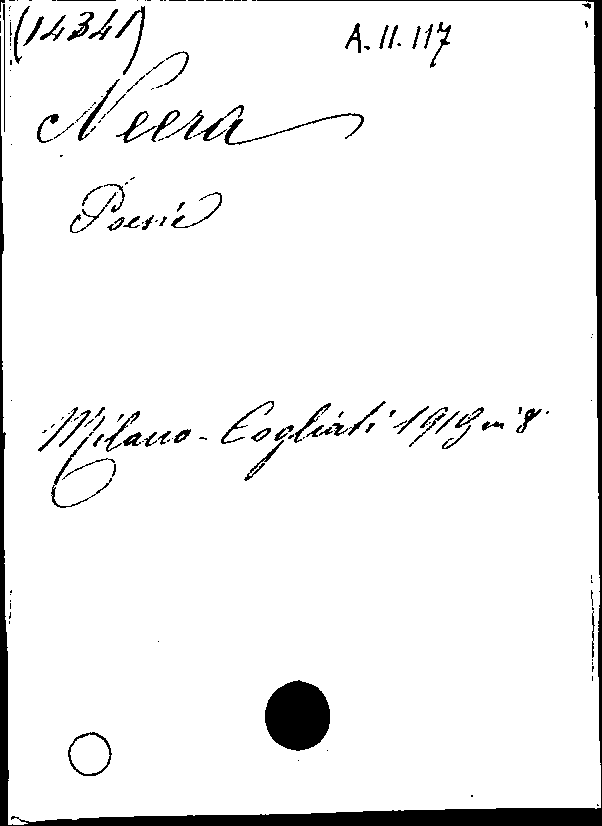 (14341)
A. 11. 117
Neera
Poesie
Milano - Cogliati 1919 in 8°